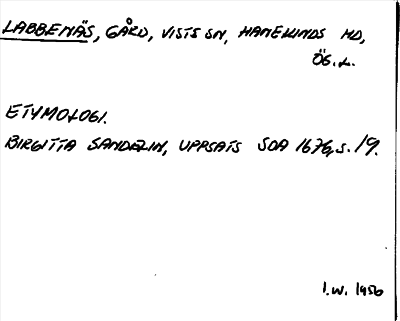 LABBENÄS, GÅRD, VISTS SN, HANEKINDS HD,
ÖG. L.
ETYMOLOGI.
BIRGITTA SANDELIN, UPPSATS SOA 1676, s. 19.
I.W. 1956